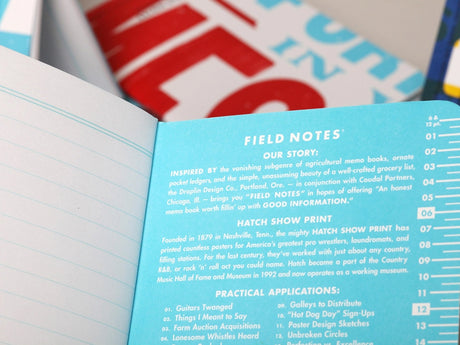 FIELD NOTES
OUR STORY:
INSPIRED BY the vanishing subgenre of agricultural memo books, ornate
pocket ledgers, and the simple, unassuming beauty of a well-crafted grocery list,
the Draplin Design Co., Portland, Ore. — in conjunction with Coudal Partners,
Chicago, Ill. — brings you "FIELD NOTES" in hopes of offering "An honest
memo book worth fillin' up with GOOD INFORMATION."
HATCH SHOW PRINT
Founded in 1879 in Nashville, Tenn., the mighty HATCH SHOW PRINT has
printed countless posters for America's greatest pro wrestlers, laundromats, and
filling stations. For the last century, they've worked with just about any country,
R&B, or rock 'n' roll act you could name. Hatch became a part of the Country
Music Hall of Fame and Museum in 1992 and now operates as a working museum.
PRACTICAL APPLICATIONS:
01. Guitars Twanged
02. Things I Meant to Say
03. Farm Auction Acquisitions
04. Lonesome Whistles Heard
09. Galleys to Distribute
10. "Hot Dog Day" Sign-Ups
11. Poster Design Sketches
12. Unbroken Circles
6 &
12 pt.
01
02
03
04
05
06
07
08
09
10
11
12
13
IN